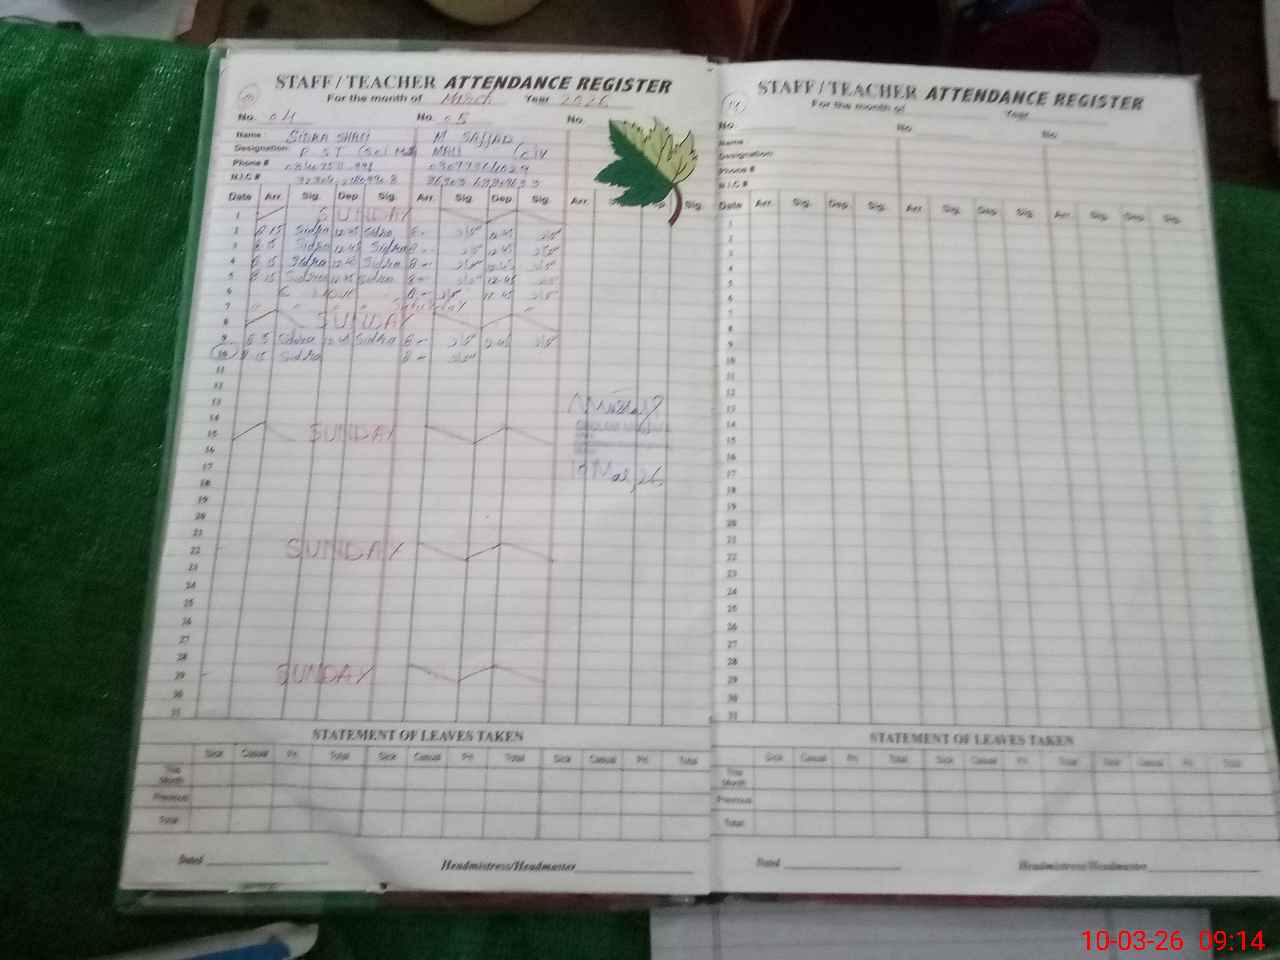 STAFF / TEACHER ATTENDANCE REGISTER
For the month of March Year 2026
No. 04 No. 05 No.
Name: SIDRA SHAFI M SAJJAD
Designation: P S T
Phone #
N.I.C #
Date Arr. Sig. Dep. Sig. Arr. Sig. Dep. Sig. Arr. Sig.
1 SUNDAY
2 8 15 Sidra 12 45 Sidra 8 - 12.45
3 8 15 Sidra 12 45 Sidra 8 - 12.45
4 8 15 Sidra 12 45 Sidra 8 - 12.45
5 8 15 Sidra 12 45 Sidra 8 - 12.45
6 8 - 12.45
7 Saturday
8 SUNDAY
9 8 15 Sidra 12 45 Sidra 8 - 12.45
10 8 15 Sidra 8 -
11
12
13
14
15 SUNDAY
16
17
18
19
20
21
22 SUNDAY
23
24
25
26
27
28
29 SUNDAY
30
31
10 Mar, 26
STATEMENT OF LEAVES TAKEN
Sick Casual Pri Total Sick Casual Pri Total Sick Casual Pri Total
This Month
Previous
Total
Dated
Headmistress/Headmaster
STAFF / TEACHER ATTENDANCE REGISTER
For the month of Year
No. No. No.
Name
Designation:
Phone #
N.I.C #
Date Arr. Sig. Dep. Sig. Arr. Sig. Dep. Sig. Arr. Sig. Dep. Sig.
1
2
3
4
5
6
7
8
9
10
11
12
13
14
15
16
17
18
19
20
21
22
23
24
25
26
27
28
29
30
31
STATEMENT OF LEAVES TAKEN
Sick Casual Pri Total Sick Casual Pri Total Sick Casual Pri Total
This Month
Previous
Total
Dated
Headmistress/Headmaster
10-03-26 09:14